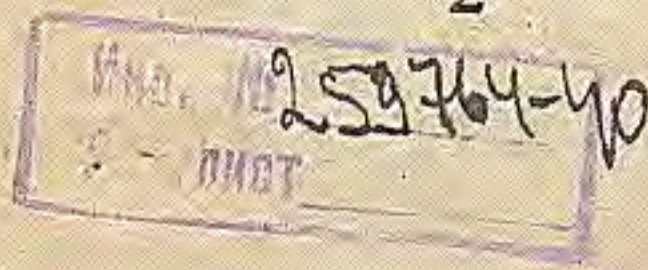 Инв. № 259764-40
лист